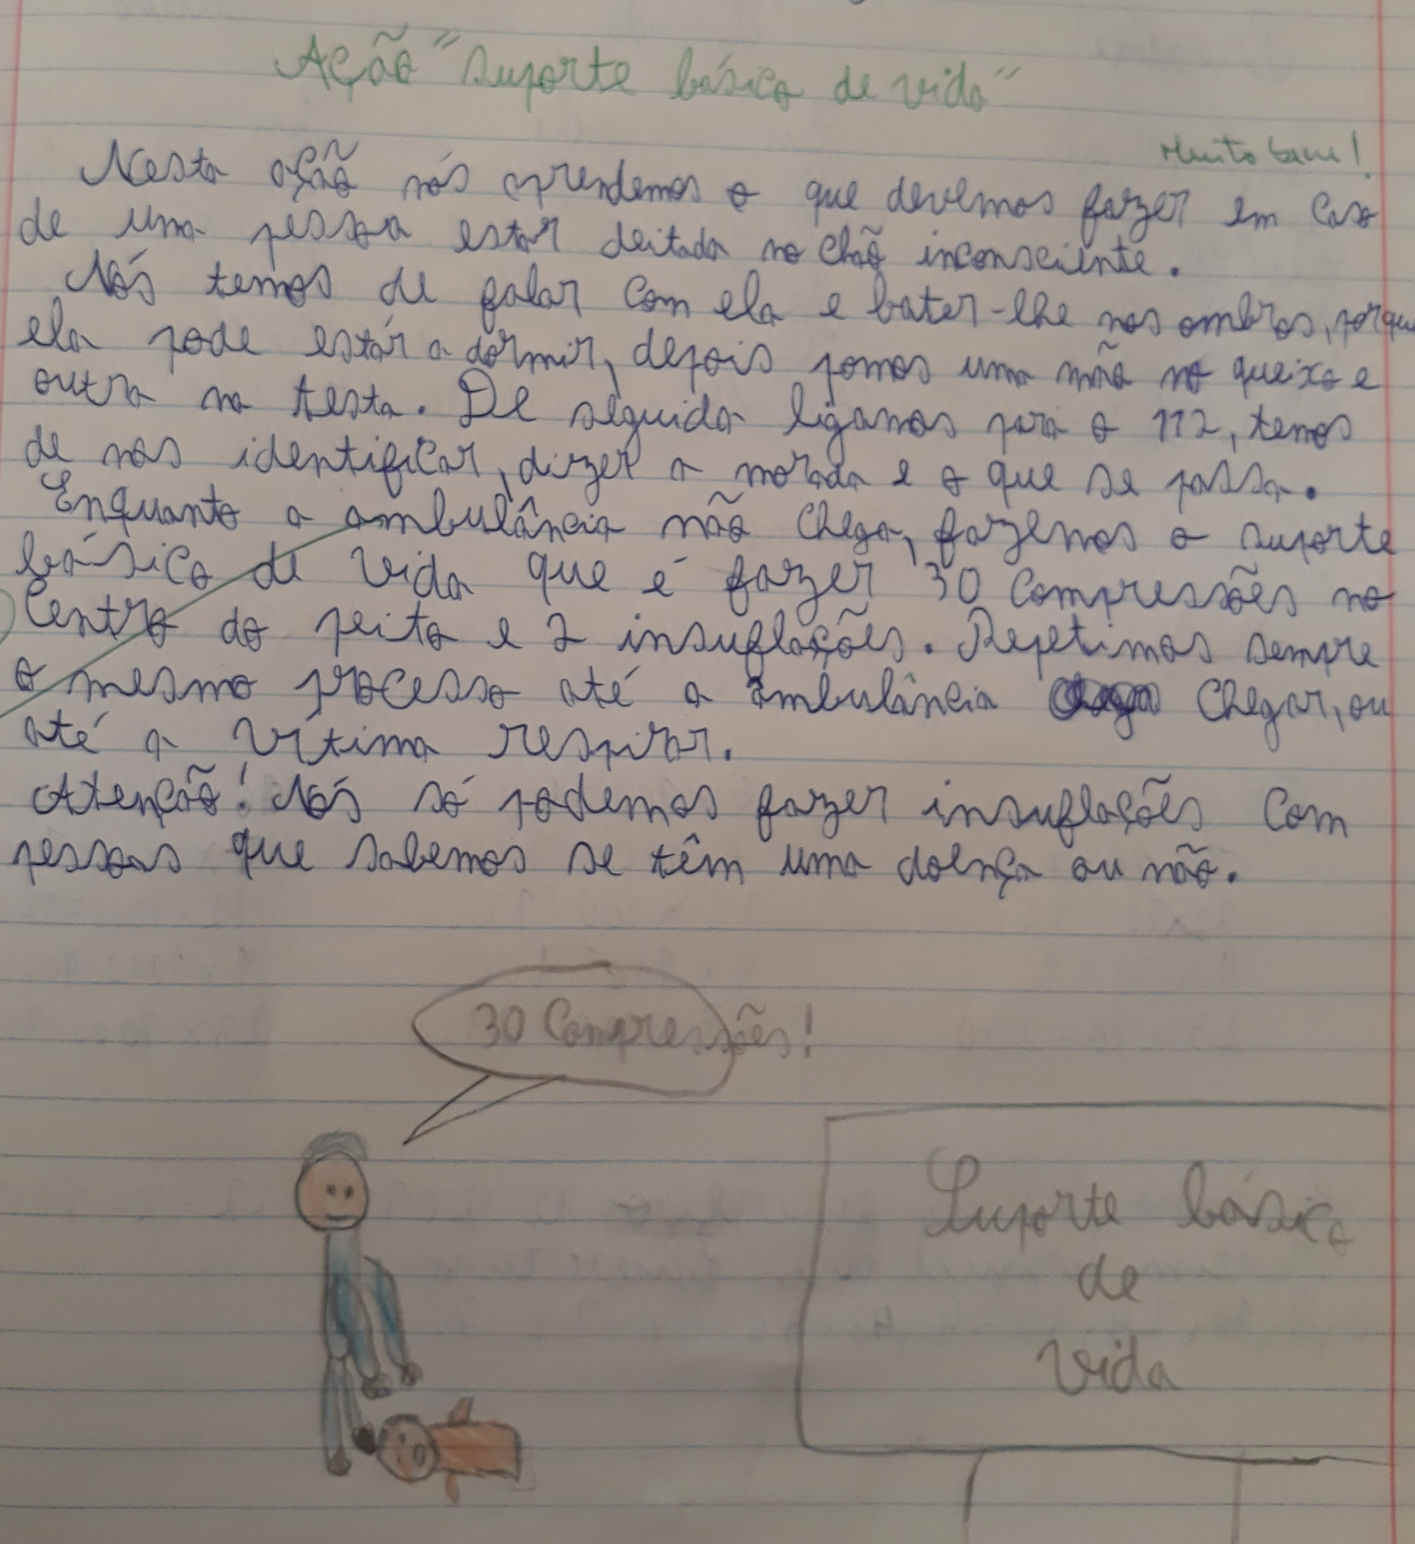 Ação "Suporte básico de vida"
Muito bem!
Nesta ação nós aprendemos o que devemos fazer em caso
de uma pessoa estar deitada no chão inconsciente.
Nós temos de falar com ela e bater-lhe nos ombros, porque
ela pode estar a dormir, depois pomos uma mão no queixo e
outra na testa. De seguida ligamos para o 112, temos
de nos identificar, dizer a morada e o que se passa.
Enquanto a ambulância não chega, fazemos o suporte
básico de vida que é fazer 30 compressões no
centro do peito e 2 insuflações. Repetimos sempre
o mesmo processo até a ambulância chegar, ou
até a vítima respirar.
Atenção! Nós só podemos fazer insuflações com
pessoas que sabemos se têm uma doença ou não.
30 Compressões!
Suporte básico
de
vida